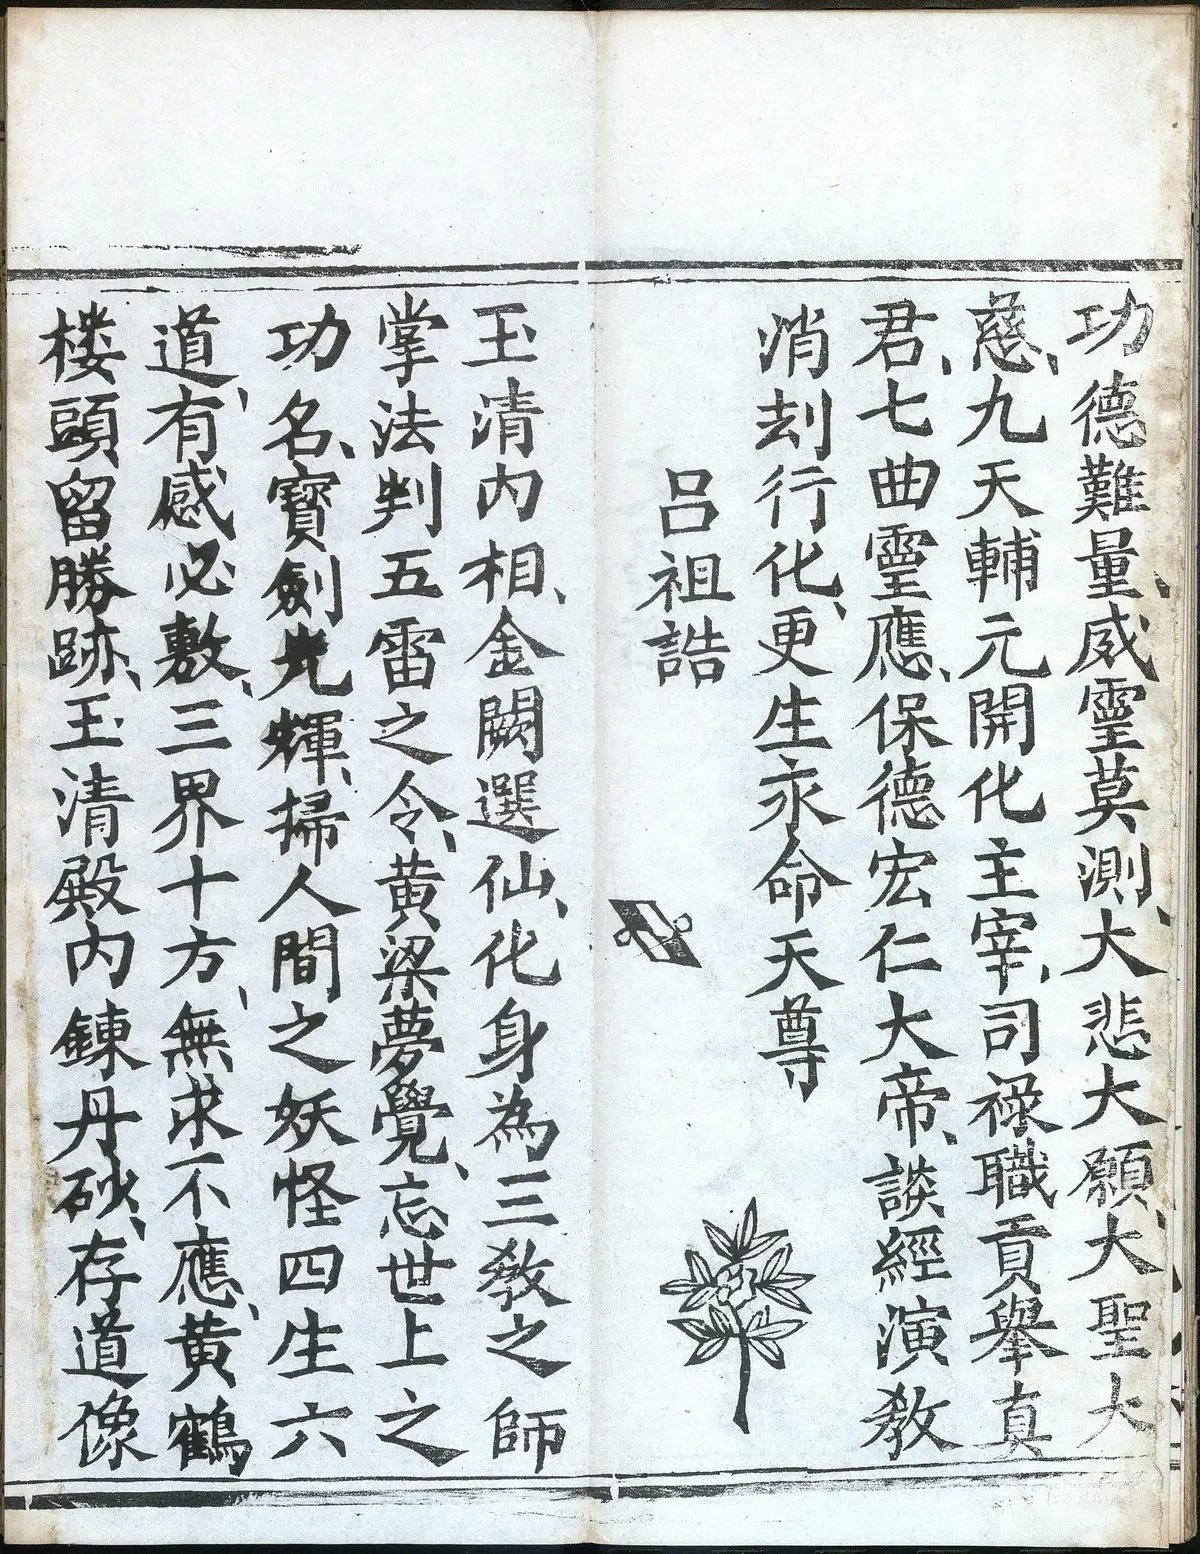 功德難量、威靈莫測、大悲大願、大聖大
慈、九天輔元開化主宰、司祿職貢舉真
君、七曲靈應、保德宏仁大帝、談經演教
消刦行化、更生永命天尊
呂祖誥
玉清内相、金闕選仙、化身為三教之師
掌法判五雷之令、黄梁夢覺、忘世上之
功名、寳劍光輝、掃人間之妖怪四生六
道、有感必敷、三界十方、無求不應、黄鶴
楼頭留勝跡、玉清殿内鍊丹砂、存道像